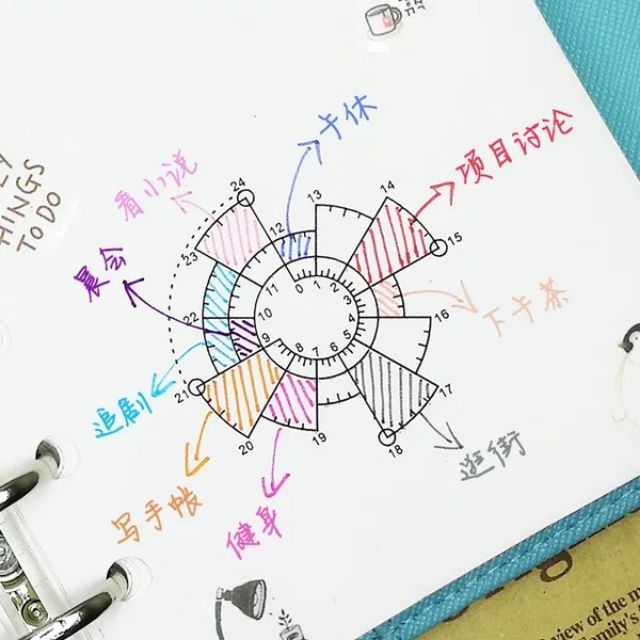 THINGS
TO DO
午休
项目讨论
看小说
晨会
下午茶
追剧
逛街
写手帐
健身
24
13
14
12
15
23
11
0
1
2
3
22
10
4
16
9
5
8
7
6
21
17
20
19
18
view of the m